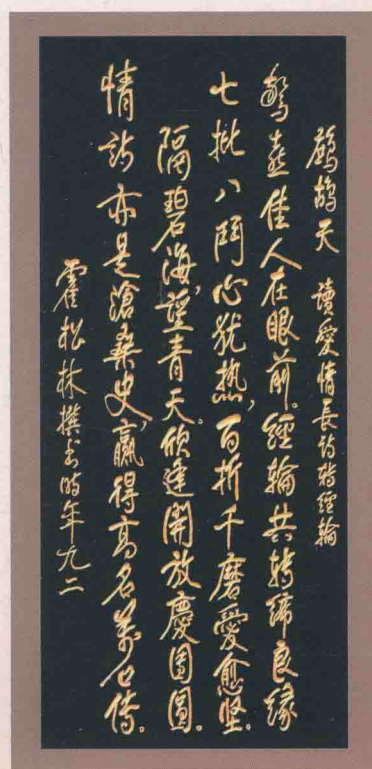 鹧鸪天 讀愛情長詩轉經輪
驚喜佳人在眼前。經輪共轉締良緣
七批八鬥心犹热,百折千磨愛愈坚。
隔碧海,望青天。欣逢開放慶團圓。
情詩亦是滄桑史,贏得高名萬古傳。
霍松林撰书時年九二